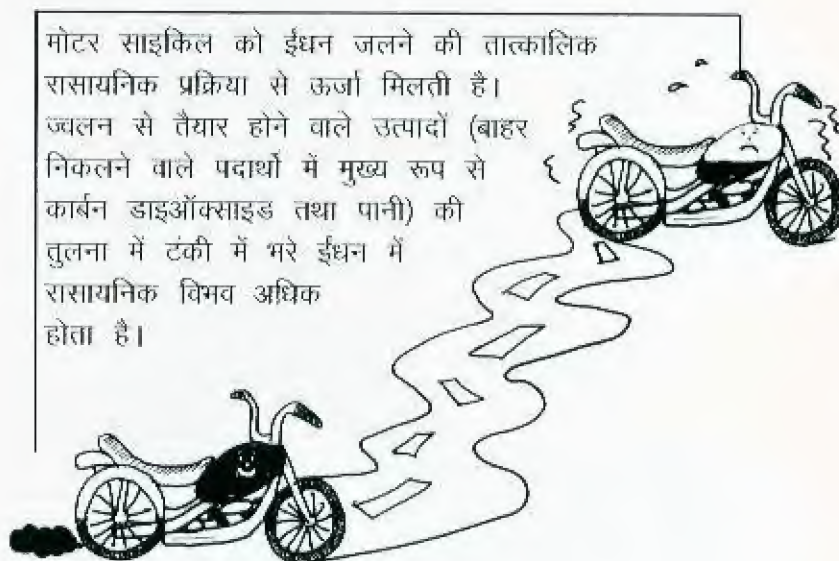 मोटर साइकिल को ईंधन जलने की तात्कालिक
रासायनिक प्रक्रिया से ऊर्जा मिलती है।
ज्वलन से तैयार होने वाले उत्पादों (बाहर
निकलने वाले पदार्थो में मुख्य रूप से
कार्बन डाइऑक्साइड तथा पानी) की
तुलना में टंकी में भरे ईंधन में
रासायनिक विभव अधिक
होता है।